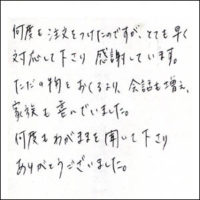 何度も注文をつけたのですが、とても早く
対応して下さり感謝しています。
ただの物をおくるより、会話も増え、
家族も喜いでいました。
何度もわがままを聞いて下さり
ありがとうございました。